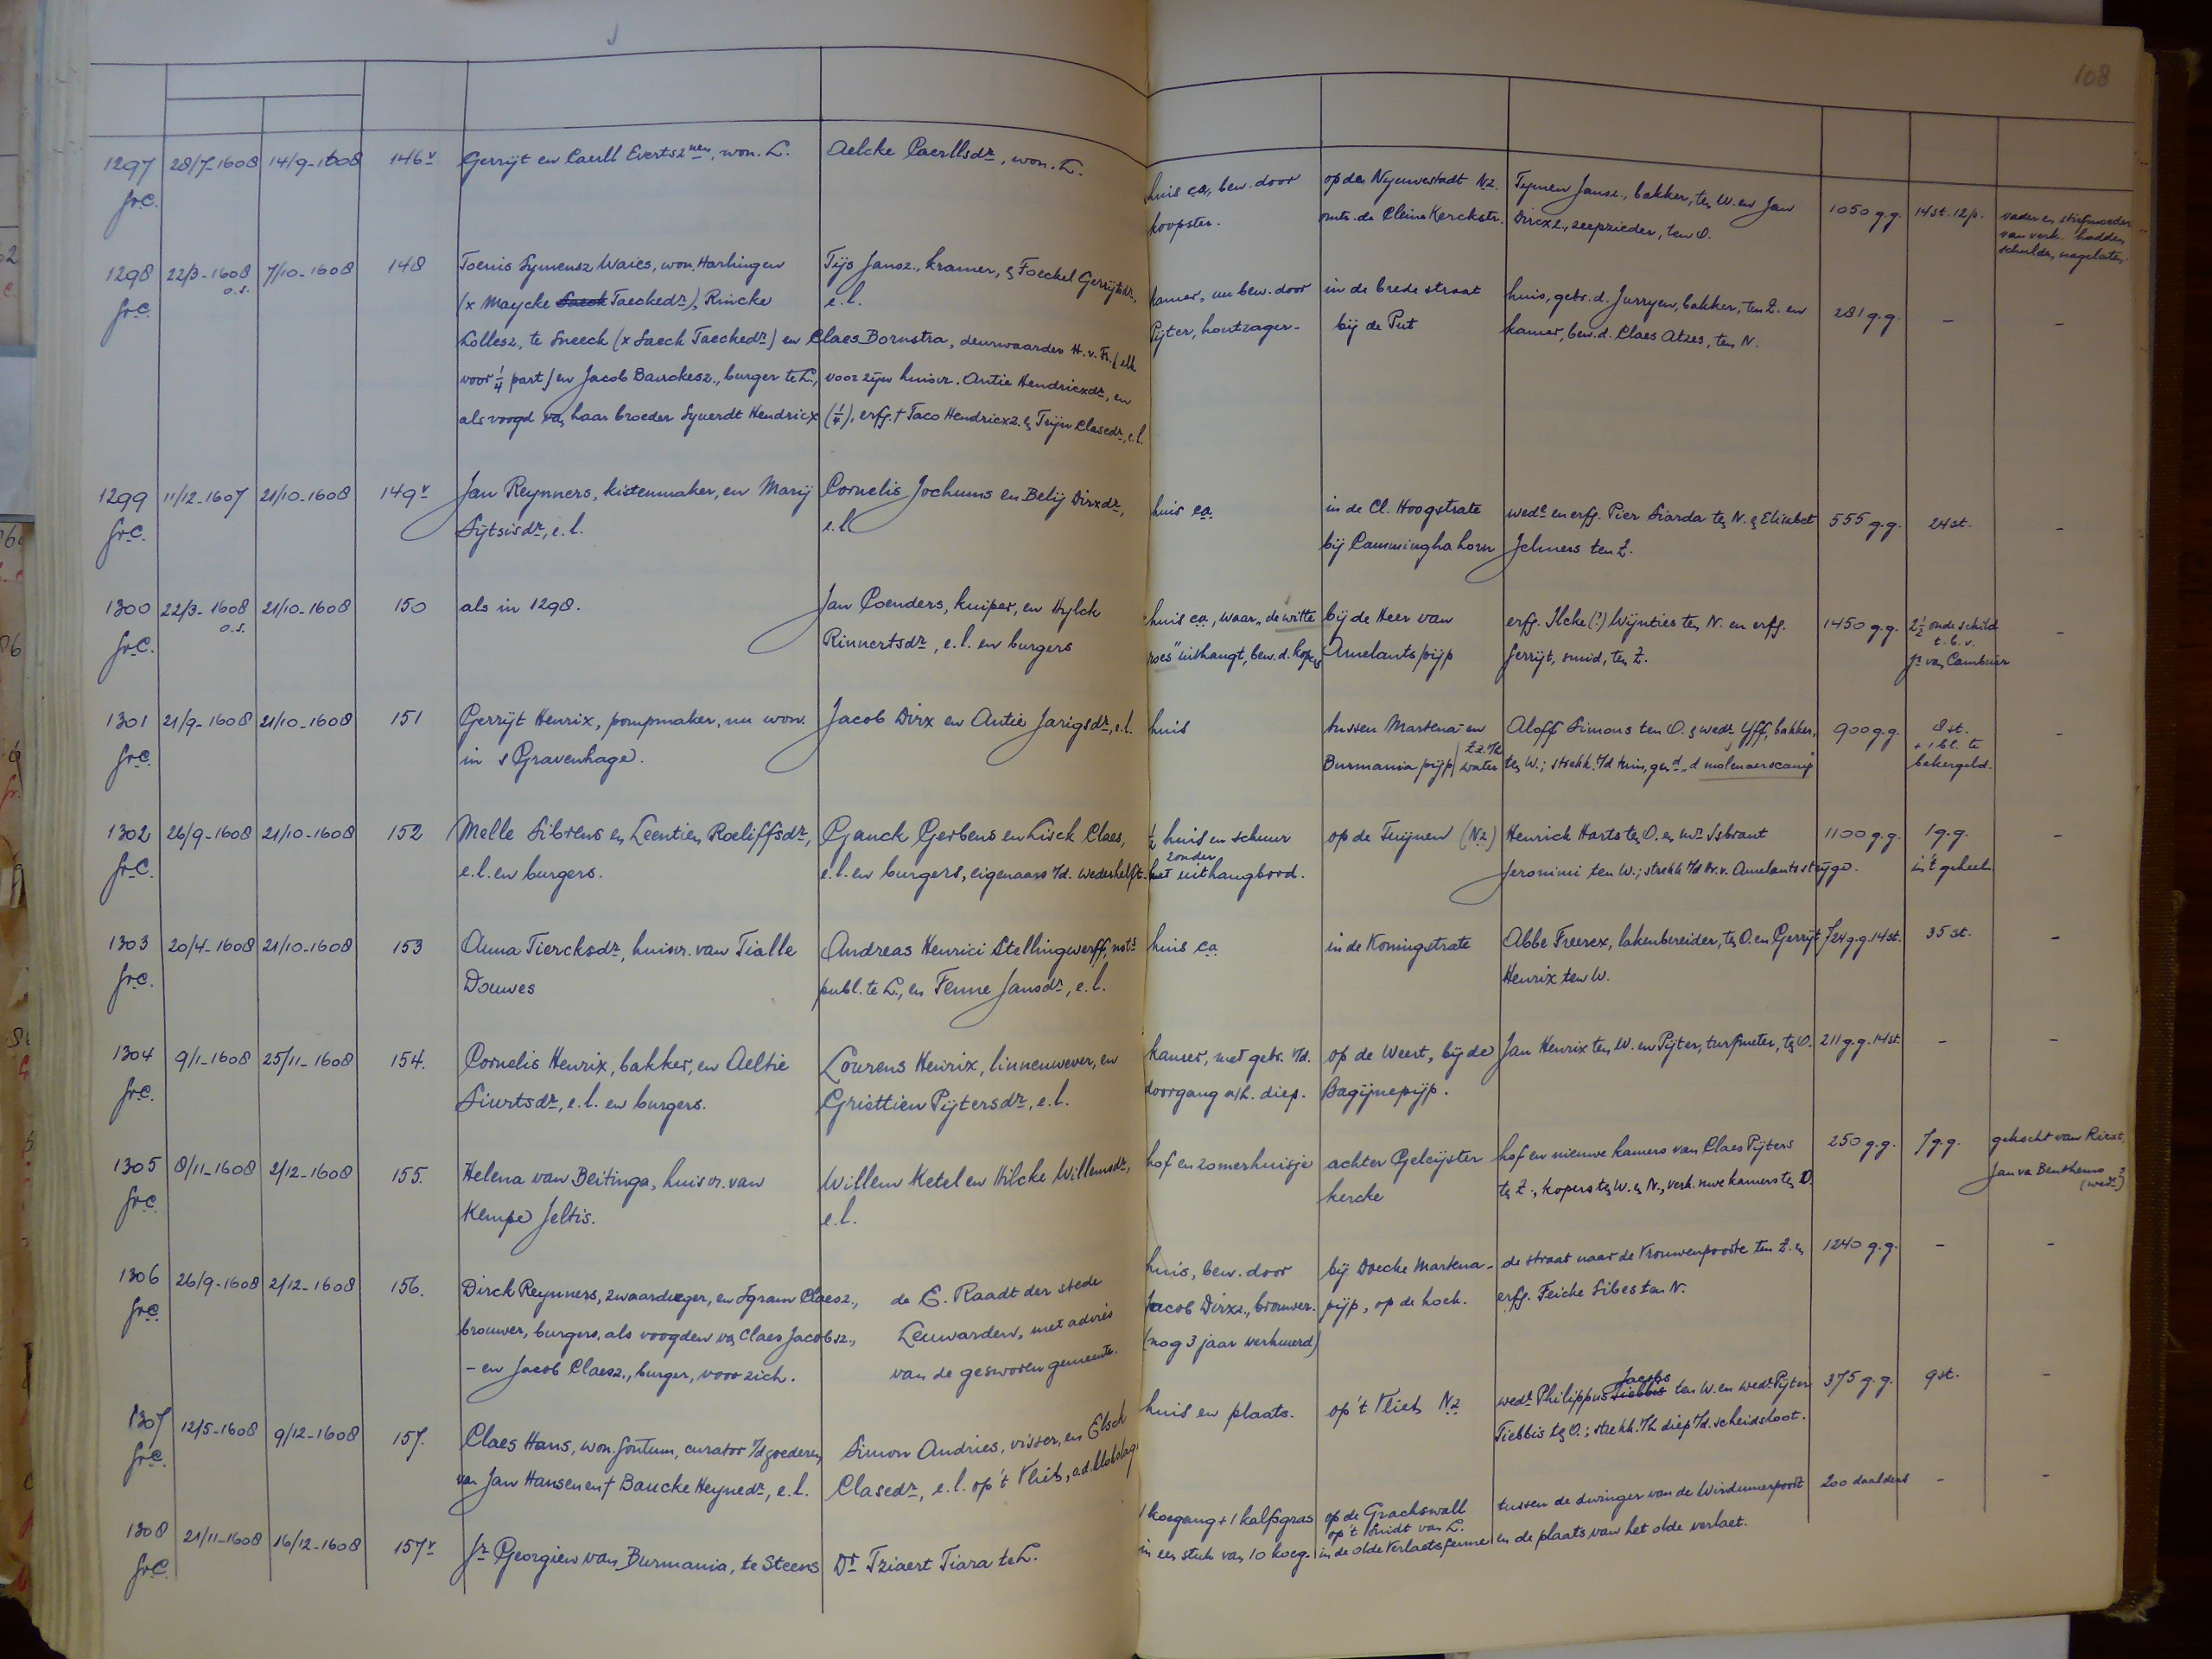 108
1297 28/7-1608 14/9-1608 146v Gerrijt en Caerll Evertsznen, won. L. Aelcke Caerllsdr, won. L. huis ca, bew. door op de Nyeuwestadt Nz. Tymen Jansz., bakker, ten W. en Jan 1050 g.g. 14 st. 12 p. vader en stiefmoeder
frC. koopster. omtr. de Cleine Kerckstr. Dircxz., zeepzieder, ten O. van verk. hadden
schulden nagelaten.
1298 22/3-1608 7/10-1608 148 Toenis Symensz Waies, won. Harlingen Tijs Jansz., kramer, en Foeckel Gerrijtsdr, kamer, nu bew. door in de brede straat huis, gebr. d. Jurryen, bakker, ten Z. en 281 g.g. - -
o.s.
frC. (x Maycke Saeck Taeckedr), Rincke e.l. Pijter, houtzager- bij de Put kamer, bew. d. Claes Atzes, ten N.
Lollesz, te Sneeck (x Saeck Taeckedr) en Claes Bornstra, deurwaarder H.v.Fr. (elk
voor 1/4 part) en Jacob Bauckesz., burger te L., voor zijn huisvr. Antie Hendricxdr, en
als voogd van haar broeder Syuerdt Hendricx (1/4), erfg. † Taco Hendricxz. en Trijn Clasedr, e.l.
1299 11/12-1607 21/10-1608 149v Jan Reynners, kistenmaker, en Marij Cornelis Jochums en Belij Dirxdr, huis ca. in de Cl. Hoogstrate wede en erfg. Pier Siarda ten N. en Elisabet 555 g.g. 24 st. -
frC. Sijtsisdr, e.l. e.l. bij Camminghahorn Jelmers ten Z.
1300 22/3-1608 21/10-1608 150 als in 1298. Jan Coenders, kuiper, en Hylck huis ca, waar „de witte bij de Heer van erfg. Ilcke (?) Wijnties ten N. en erfg. 1450 g.g. 2½ oude schild -
o.s. t.b.v.
frC. Rinnertsdr, e.l. en burgers roes" uithangt, bew. d. kopers Amelants pijp Gerrijt, smid, ten Z. jr van Cambuur
1301 21/9-1608 21/10-1608 151 Gerrijt Henrix, pompmaker, nu won. Jacob Dirx en Antie Jarigsdr, e.l. huis tussen Martena- en Aloff Simons ten O. en wedr Yff, bakker, 900 g.g. 8 st. -
Zz. v/h + 1 bl. te
frC. in s Gravenhage. Burmania pijp water ten W.; strekk. t/d tuin, gend „d molenaerscamp bekergeld.
1302 26/9-1608 21/10-1608 152 Melle Sibrens en Leentien Roeliffsdr, Ganck Gerbens en Lisck Claes, ½ huis en schuur op de Tuijnen (Nz) Henrick Harts ten O. en mr Isbrant 1100 g.g. 1 g.g. -
zonder
frC. e.l. en burgers. e.l. en burgers, eigenaars v/d. wederhelft. het uithangbord. Jeronimi ten W.; strekk t/d Hr. v. Amelants stijge. in 't geheel
1303 20/4-1608 21/10-1608 153 Anna Tiercksdr, huisvr. van Tialle Andreas Henrici Stellingwerff, nots huis ca in de Koningstrate Abbe Freerex, lakenbereider, ten O. en Gerrijt 724 g.g. 14 st. 35 st. -
frC. Douwes publ. te L., en Fenne Jansdr, e.l. Henrix ten W.
1304 9/1-1608 25/11-1608 154. Cornelis Henrix, bakker, en Aeltie Lourens Henrix, linnenwever, en kamer, met gebr. v/d. op de Weert, bij de Jan Henrix ten W. en Pijter, turfmeter, ten O. 211 g.g. 14 st. - -
frC. Siurtsdr, e.l. en burgers. Griettien Pijtersdr, e.l. doorgang n/h. diep. Bagijnepijp.
1305 8/11-1608 2/12-1608 155. Helena van Beitinga, huisvr. van Willem Ketel en Hilcke Willemsdr, hof en zomerhuisje achter Geleijster hof en nieuwe kamers van Claes Pijters 250 g.g. 7 g.g. gekocht van
frC. Kempo Jeltis. e.l. kercke ten Z., kopers ten W. en N., verk. nwe kamers ten O. Jan va Benthems
(wedr?)
1306 26/9-1608 2/12-1608 156. Dirck Reynners, zwaardveger, en Sgram Claesz., de E. Raadt der stede huis, bew. door bij Doecke Martena- de straat naar de Vrouwenpoorte ten Z. en 1240 g.g. - -
frC. brouwer, burgers, als voogden van Claes Jacobsz., Leuwarden, met advies Jacob Dirxz., brouwer. pijp, op de hoek. erfg. Feicke Sibes ten N.
- en Jacob Claesz., burger, voor zich. van de gesworen gemeente. (nog 3 jaar verhuurd)
1307 12/5-1608 9/12-1608 157. Claes Hans, won. Jontum, curator v/d goederen Simon Andries, visser, en Elsck huis en plaats. op 't Vliet Nz wedr. Philippus Tiebbis Jacobs ten W. en wedr. Pijter 375 g.g. 9 st. -
frC. van Jan Hansen en † Baucke Heynedr, e.l. Clasedr, e.l. op 't Vliet, o.d. klokslag Tiebbis ten O.; strekk. v/h diep t/d. scheidsloot.
1308 21/11-1608 16/12-1608 157v Jr Georgien van Burmania, te Steens Dr Tziaert Tiara te L. 1 koegang + 1 kalfsgras op de Grachswall tussen de dwinger van de Wirdumerpoort 200 daalders - -
op 't Suidt van L.
frC. in een stuk van 10 koeg. in de olde Verlaetsfenne en de plaats van het olde verlaet.